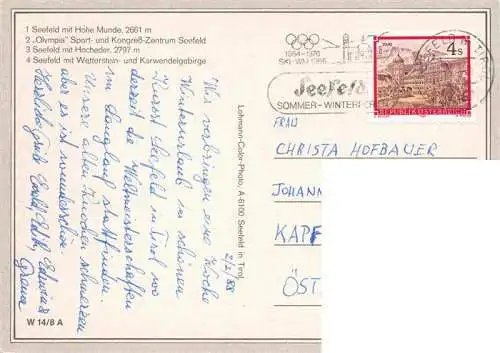 1 Seefeld mit Hohe Munde, 2661 m
2 „Olympia" Sport- und Kongreß-Zentrum Seefeld
3 Seefeld mit Hocheder, 2797 m
4 Seefeld mit Wetterstein- und Karwendelgebirge
2/2/88
Wir verbringen eine Woche
Winterurlaub im schönen
Kurort Seefeld in Tirol wo
derzeit die Weltmeisterschaften
im Langlauf stattfinden.
Unsere alten Knochen schmerzen
aber es ist wunderschön.
Herzliche Grüße
W 14/8 A
Lohmann-Color-Photo, A-6100 Seefeld in Tirol
1964-1976
SKI-WM 1985
Seefeld
SOMMER-WINTERFR
4 S
REPUBLIK ÖSTERREICH
FRAU
CHRISTA HOFBAUER
JOHANN
KAPF
ÖST